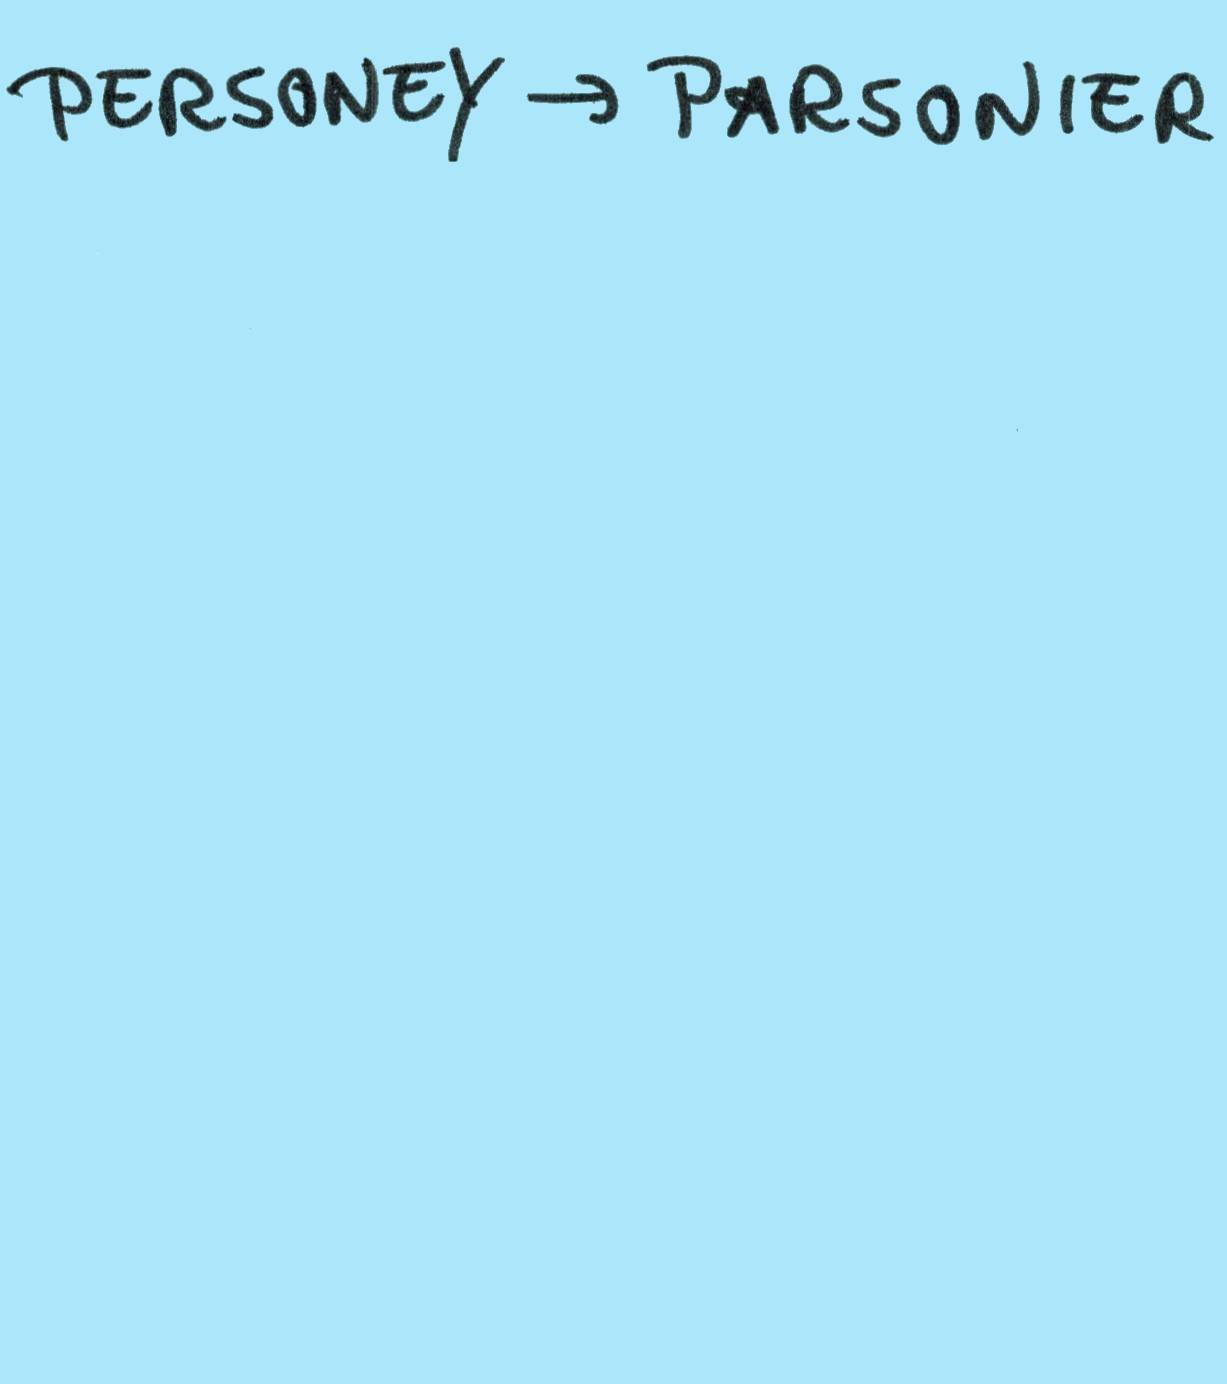 PERSONEY → PARSONIER